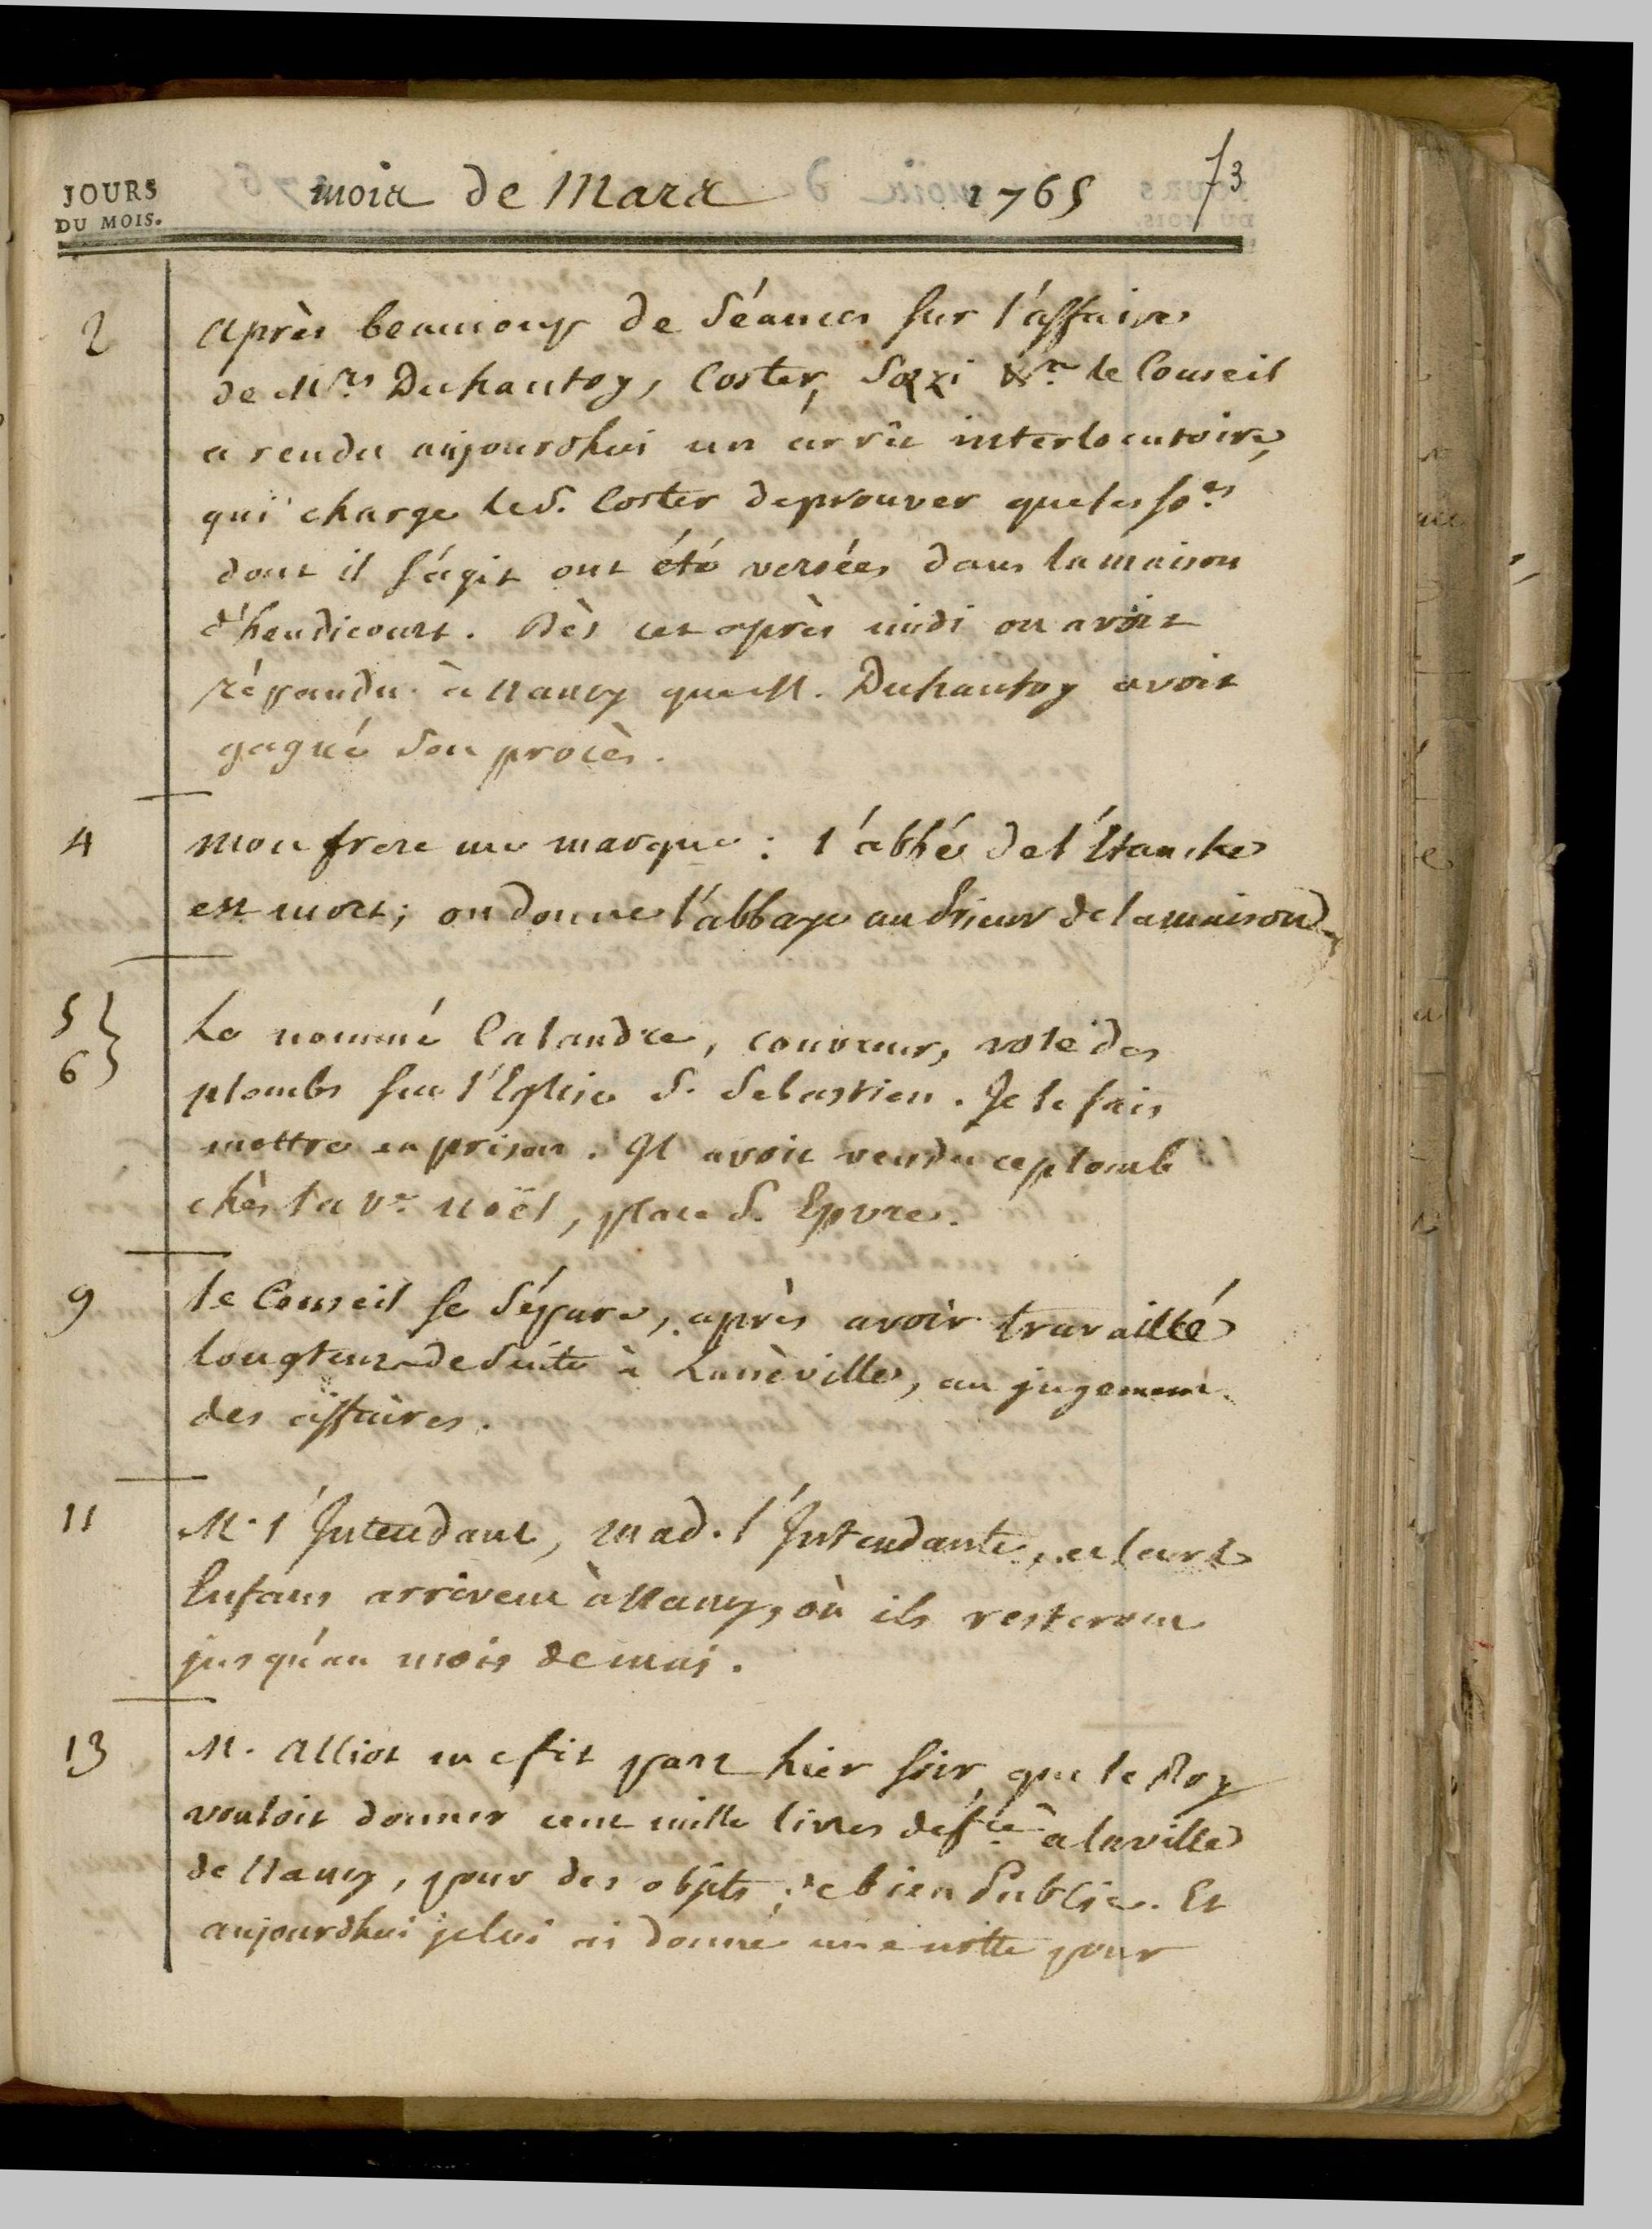 JOURS
DU MOIS.
mois de Mars 1765
73
2 après beaucoup de Séances sur l'affaire
de Mrs. Duhautoy, Coster, Sozzi &c. le Conseil
a rendu aujourdhui un arrêt interlocutoire,
qui charge le S. Coster de prouver que les so.es
dont il s'agit ont été versées dans la maison
d'heudicourt. Dès cet après midi on avoit
répandu à Nancy que M. Duhautoy avoit
gagné son procès.
4 Mon frere me marque : l'abbé de l'Etanche
est mort; on donne l'abbaye au Prieur de la maison
5 }
6 } Le nommé Calandre, couvreur, vole des
plombs sur l'Eglise S. Sebastien. Je le fais
mettre en prison. Il avoit vendu ce plomb
chès la Ve. Noël, place S. Epvre.
9 le Conseil se Sépare, après avoir travaillé
longtems de Suite à Lunéville, au jugement
des affaires.
11 M. l'Intendant, Mad. l'Intendante, et leurs
Enfans arrivent à Nancy, où ils resteront
jusqu'au mois de mai.
13 M. Alliot me fit part hier soir, que le Roy
vouloit donner cent mille livres de f.ce à la ville
de Nancy, pour des objets de bien Public. Et
aujourdhui je lui ai donné une notte pour